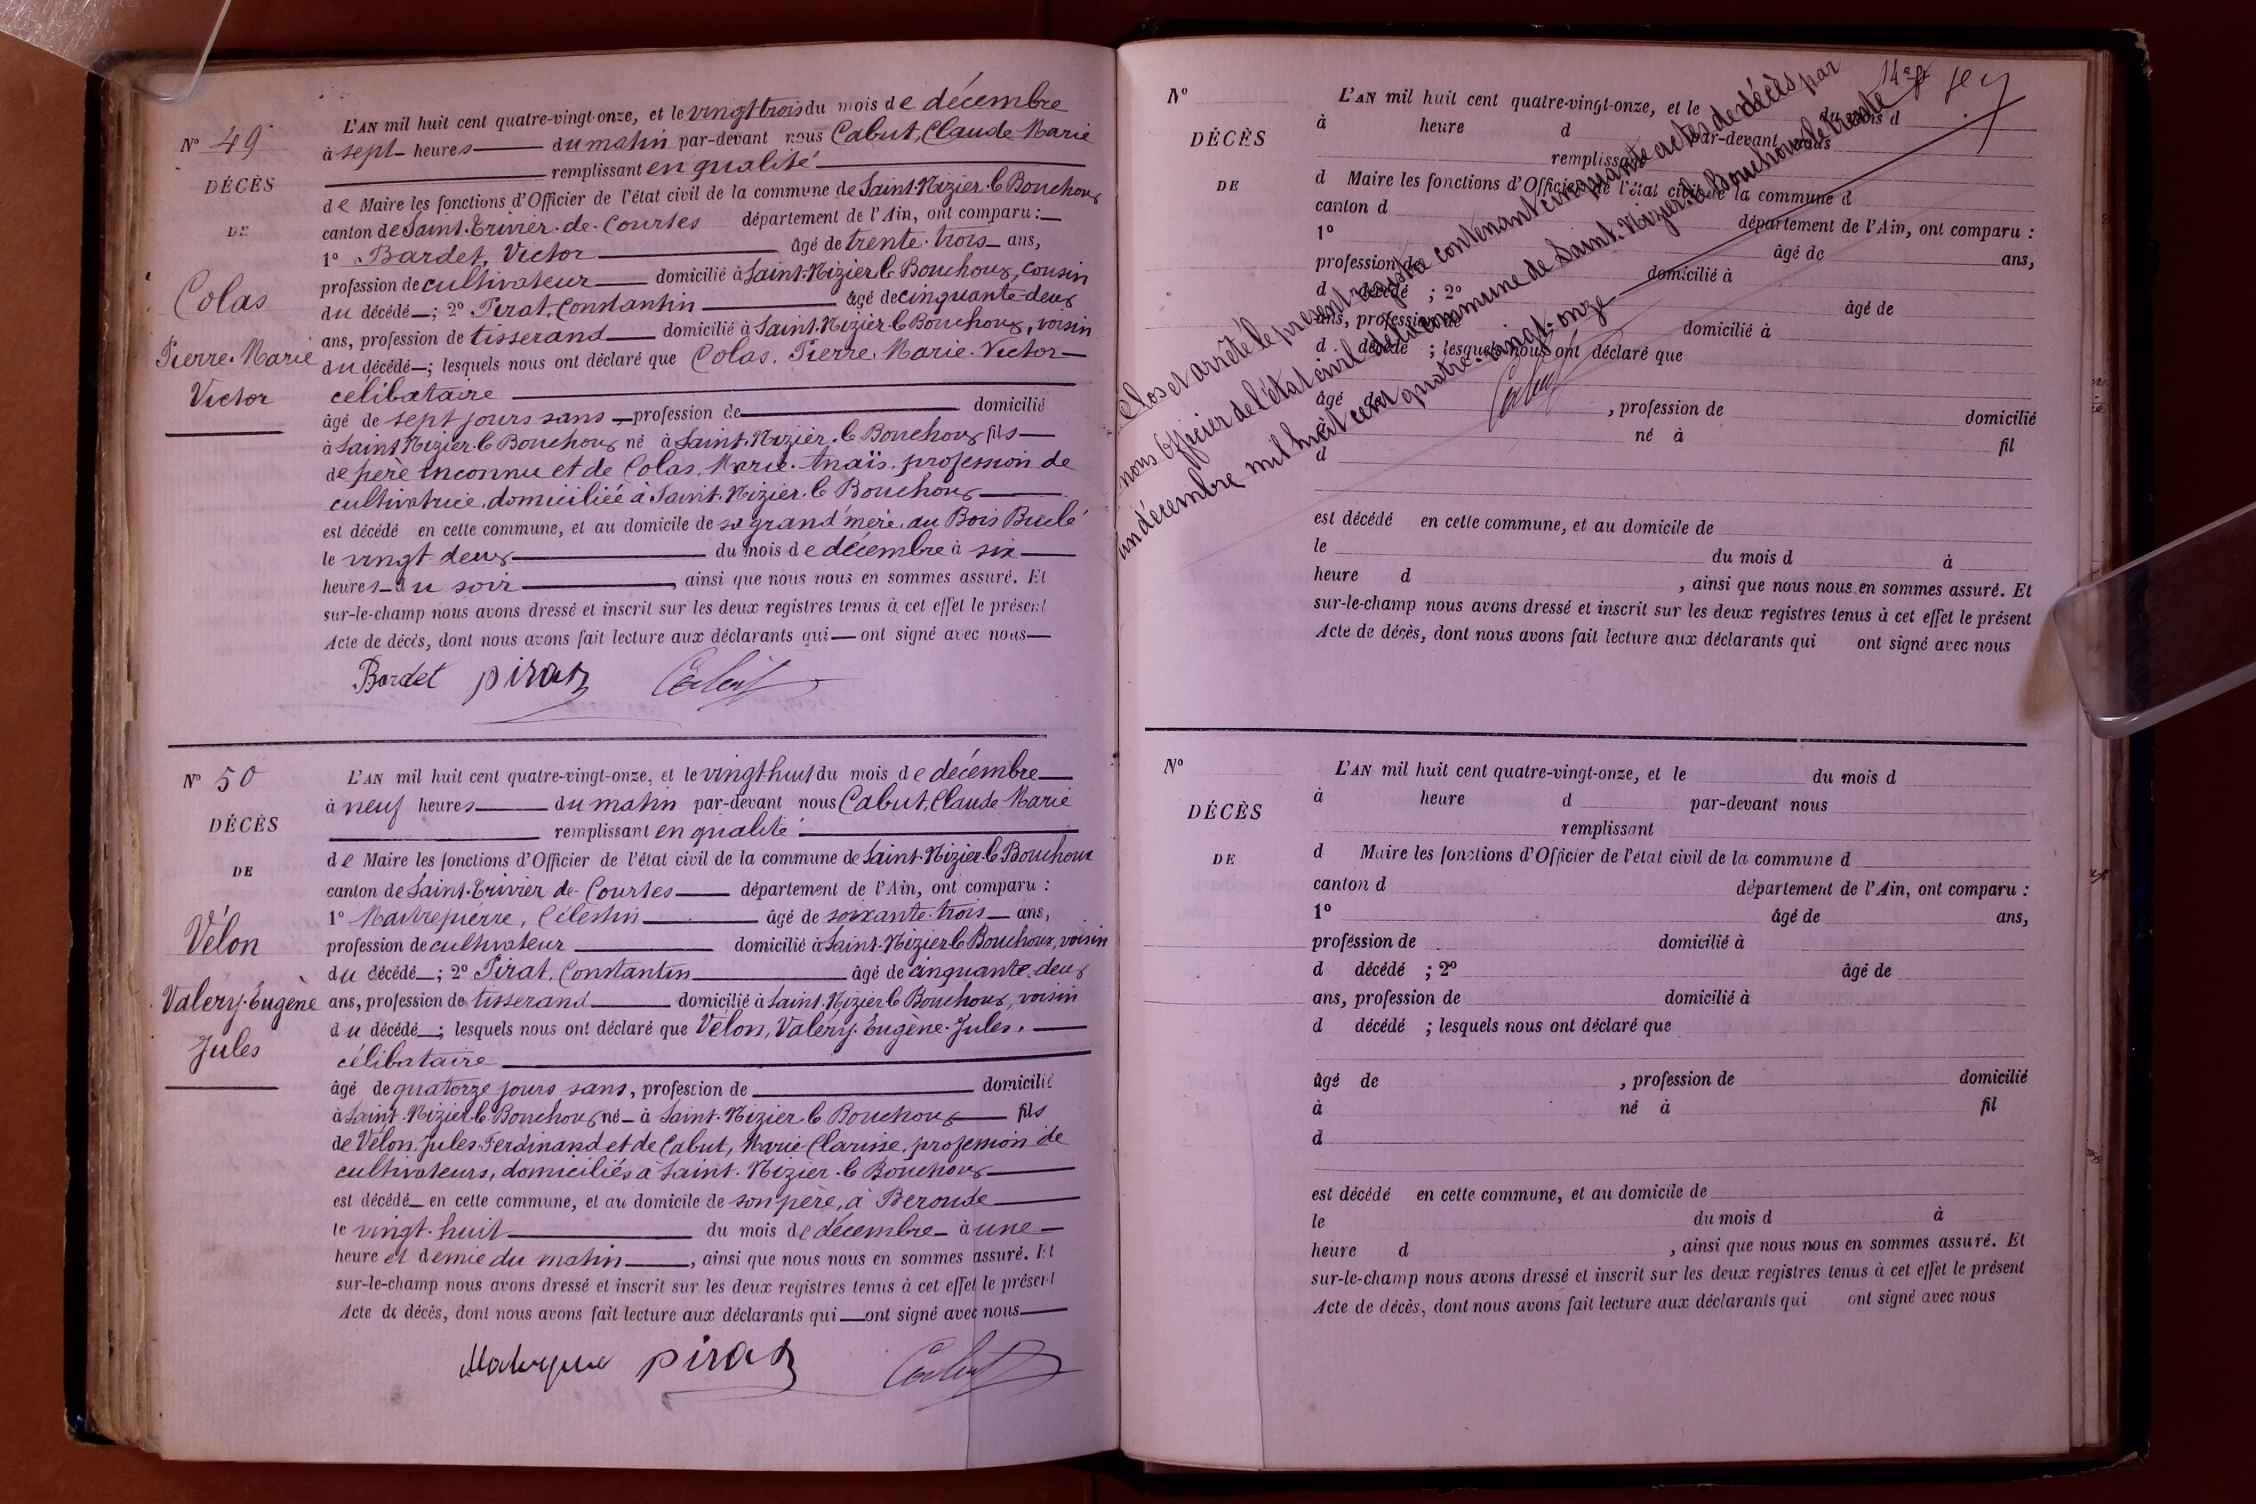 N° 49
DÉCÈS
DE
Colas
Pierre-Marie
Victor
L'AN mil huit cent quatre-vingt-onze, et le vingt trois du mois de décembre
à sept heures du matin par-devant nous Cabut, Claude Marie
remplissant en qualité
de Maire les fonctions d'Officier de l'état civil de la commune de Saint-Nizier-le Bouchoux
canton de Saint-Trivier-de-Courtes département de l'Ain, ont comparu :
1° Bardet, Victor âgé de trente-trois ans,
profession de cultivateur domicilié à Saint-Nizier le Bouchoux, cousin
du décédé ; 2° Pirat, Constantin âgé de cinquante-deux
ans, profession de tisserand domicilié à Saint-Nizier le Bouchoux, voisin
du décédé ; lesquels nous ont déclaré que Colas, Pierre-Marie-Victor
célibataire
âgé de sept jours sans profession de domicilié
à Saint Nizier-le Bouchoux né à Saint-Nizier-le Bouchoux fils
de père inconnu et de Colas, Marie-Anaïs, profession de
cultivatrice, domiciliée à Saint-Nizier-le Bouchoux
est décédé en cette commune, et au domicile de sa grand'mère, au Bois Brulé
le vingt deux du mois de décembre à six
heures du soir , ainsi que nous nous en sommes assuré. Et
sur-le-champ nous avons dressé et inscrit sur les deux registres tenus à cet effet le présent
Acte de décès, dont nous avons fait lecture aux déclarants qui ont signé avec nous
Bardet pirat Cabut
N° 50
DÉCÈS
DE
Vélon
Valery-Eugène
Jules
L'AN mil huit cent quatre-vingt-onze, et le vingt-huit du mois de décembre
à neuf heures du matin par-devant nous Cabut, Claude Marie
remplissant en qualité
de Maire les fonctions d'Officier de l'état civil de la commune de Saint-Nizier-le Bouchoux
canton de Saint-Trivier-de-Courtes département de l'Ain, ont comparu :
1° Maitrepierre, Célestin âgé de soixante-trois ans,
profession de cultivateur domicilié à Saint-Nizier le Bouchoux, voisin
du décédé ; 2° Pirat, Constantin âgé de cinquante-deux
ans, profession de tisserand domicilié à Saint-Nizier le Bouchoux, voisin
du décédé ; lesquels nous ont déclaré que Vélon, Valéry-Eugène-Jules,
célibataire
âgé de quatorze jours sans, profession de domicilié
à Saint-Nizier-le Bouchoux né à Saint-Nizier-le Bouchoux fils
de Vélon, Jules Ferdinand et de Cabut, Marie Clarisse, profession de
cultivateurs, domiciliés à Saint-Nizier-le Bouchoux
est décédé en cette commune, et au domicile de son père, à Beroude
le vingt-huit du mois de décembre à une
heure et demie du matin , ainsi que nous nous en sommes assuré. Et
sur-le-champ nous avons dressé et inscrit sur les deux registres tenus à cet effet le présent
Acte de décès, dont nous avons fait lecture aux déclarants qui ont signé avec nous
pirat Cabut
14e
Clos et arrêté le présent registre contenant cinquante actes de décès par
nous Officier de l'état civil de la commune de Saint-Nizier-le Bouchoux le trente
un décembre mil huit cent quatre-vingt-onze
Cabut
N°
DÉCÈS
DE
L'AN mil huit cent quatre-vingt-onze, et le du mois d
à heure d par-devant nous
remplissant
d Maire les fonctions d'Officier de l'état civil de la commune d
canton d département de l'Ain, ont comparu :
1° âgé de ans,
profession de domicilié à
d décédé ; 2° âgé de
ans, profession de domicilié à
d décédé ; lesquels nous ont déclaré que
âgé de , profession de domicilié
à né à fil
d
est décédé en cette commune, et au domicile de
le du mois d à
heure d , ainsi que nous nous en sommes assuré. Et
sur-le-champ nous avons dressé et inscrit sur les deux registres tenus à cet effet le présent
Acte de décès, dont nous avons fait lecture aux déclarants qui ont signé avec nous
N°
DÉCÈS
DE
L'AN mil huit cent quatre-vingt-onze, et le du mois d
à heure d par-devant nous
remplissant
d Maire les fonctions d'Officier de l'état civil de la commune d
canton d département de l'Ain, ont comparu :
1° âgé de ans,
profession de domicilié à
d décédé ; 2° âgé de
ans, profession de domicilié à
d décédé ; lesquels nous ont déclaré que
âgé de , profession de domicilié
à né à fil
d
est décédé en cette commune, et au domicile de
le du mois d à
heure d , ainsi que nous nous en sommes assuré. Et
sur-le-champ nous avons dressé et inscrit sur les deux registres tenus à cet effet le présent
Acte de décès, dont nous avons fait lecture aux déclarants qui ont signé avec nous